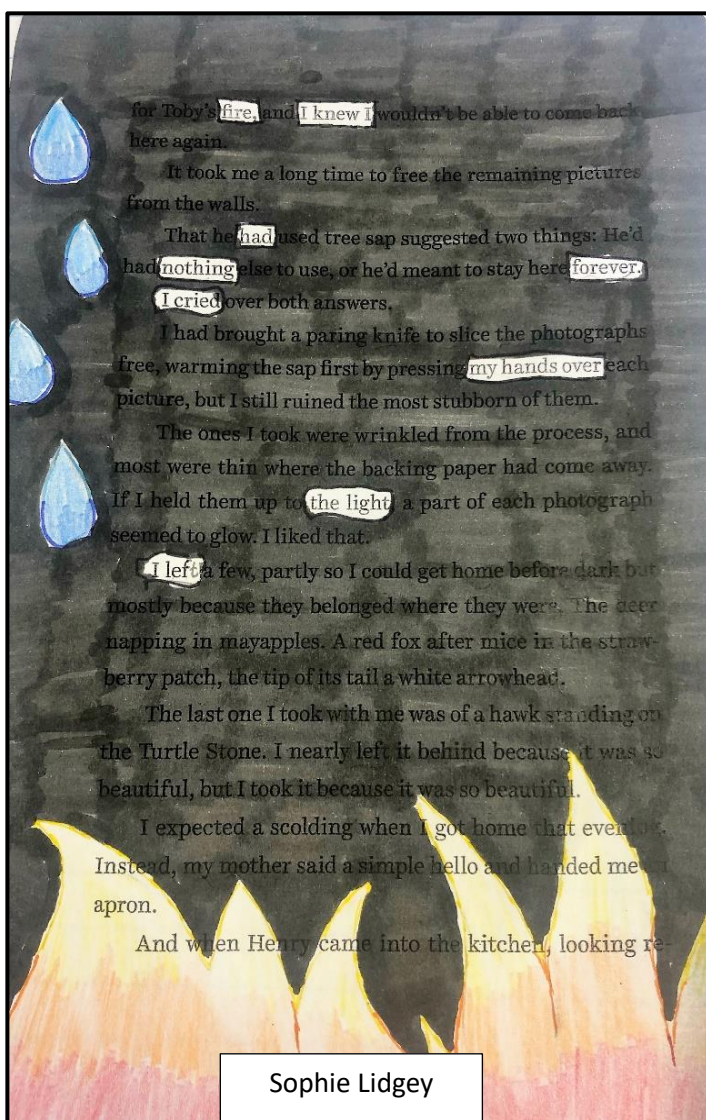 for Toby's fire, and I knew I wouldn't be able to come back
here again.
It took me a long time to free the remaining pictures
from the walls.
That he had used tree sap suggested two things: He'd
had nothing else to use, or he'd meant to stay here forever.
I cried over both answers.
I had brought a paring knife to slice the photographs
free, warming the sap first by pressing my hands over each
picture, but I still ruined the most stubborn of them.
The ones I took were wrinkled from the process, and
most were thin where the backing paper had come away.
If I held them up to the light, a part of each photograph
seemed to glow. I liked that.
I left a few, partly so I could get home before dark but
mostly because they belonged where they were. The deer
napping in mayapples. A red fox after mice in the straw-
berry patch, the tip of its tail a white arrowhead.
The last one I took with me was of a hawk standing on
the Turtle Stone. I nearly left it behind because it was so
beautiful, but I took it because it was so beautiful.
I expected a scolding when I got home that evening.
Instead, my mother said a simple hello and handed me
apron.
And when Henry came into the kitchen, looking re-
Sophie Lidgey